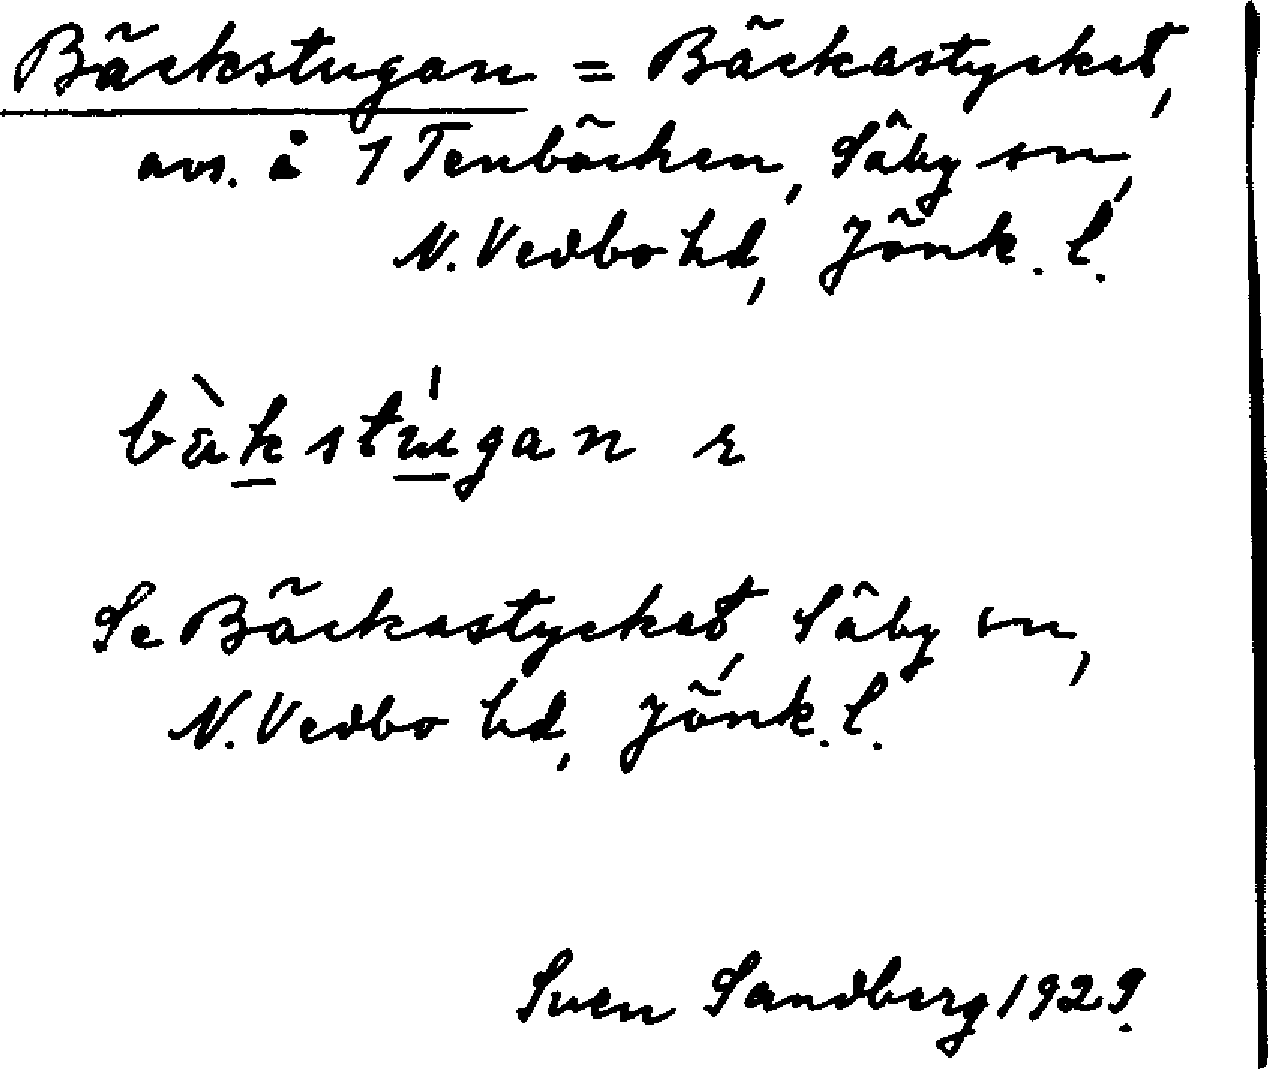 Bäckstugan = Bäckastycket,
avs. å 1 Tenbäcken, Säby sn,
N. Vedbo hd, Jönk. l.
bàkstúgan r
Se Bäckastycket, Säby sn,
N. Vedbo hd, Jönk. l.
Sven Sandberg 1929.